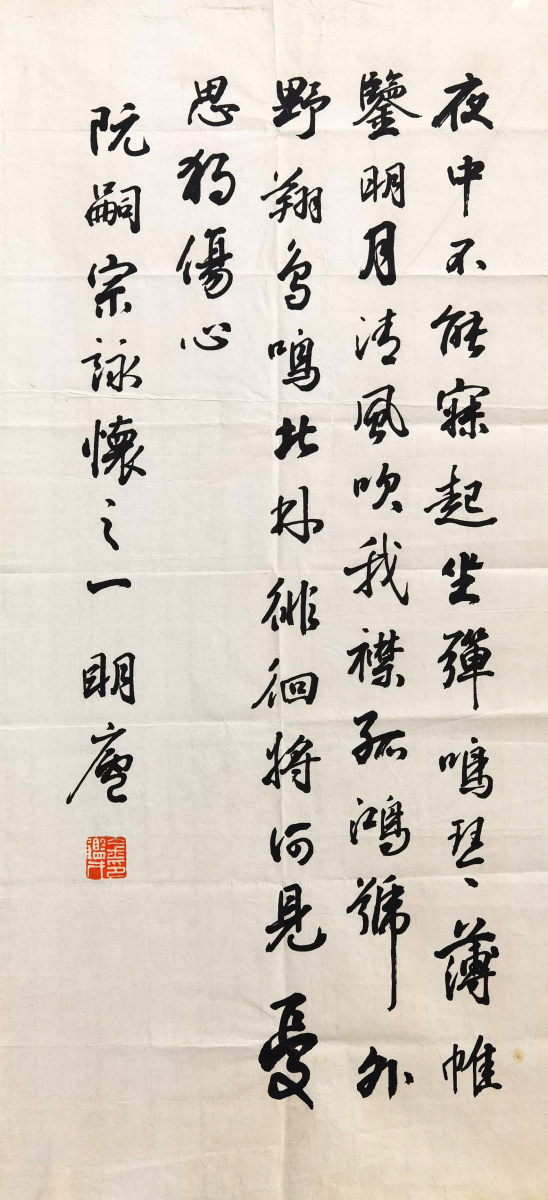 夜中不能寐起坐彈鳴琴薄帷
鑒明月清風吹我襟孤鴻號外
野翔鳥鳴北林徘徊將何見憂
思獨傷心
阮嗣宗詠懷之一 明庵